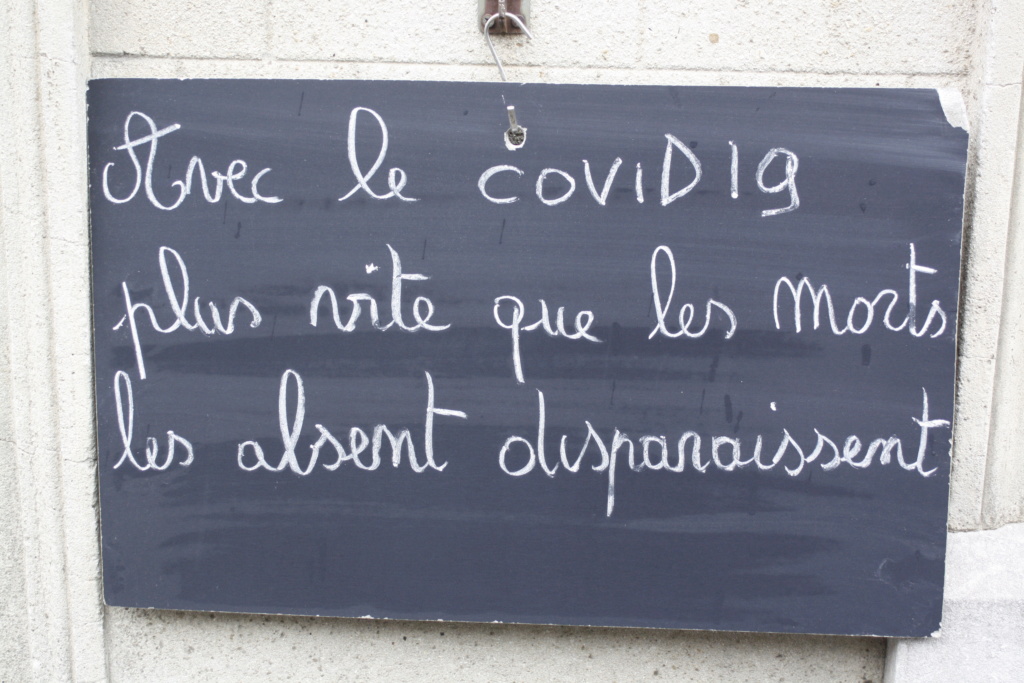 Avec le COVID19
plus vite que les morts
les absent disparaissent